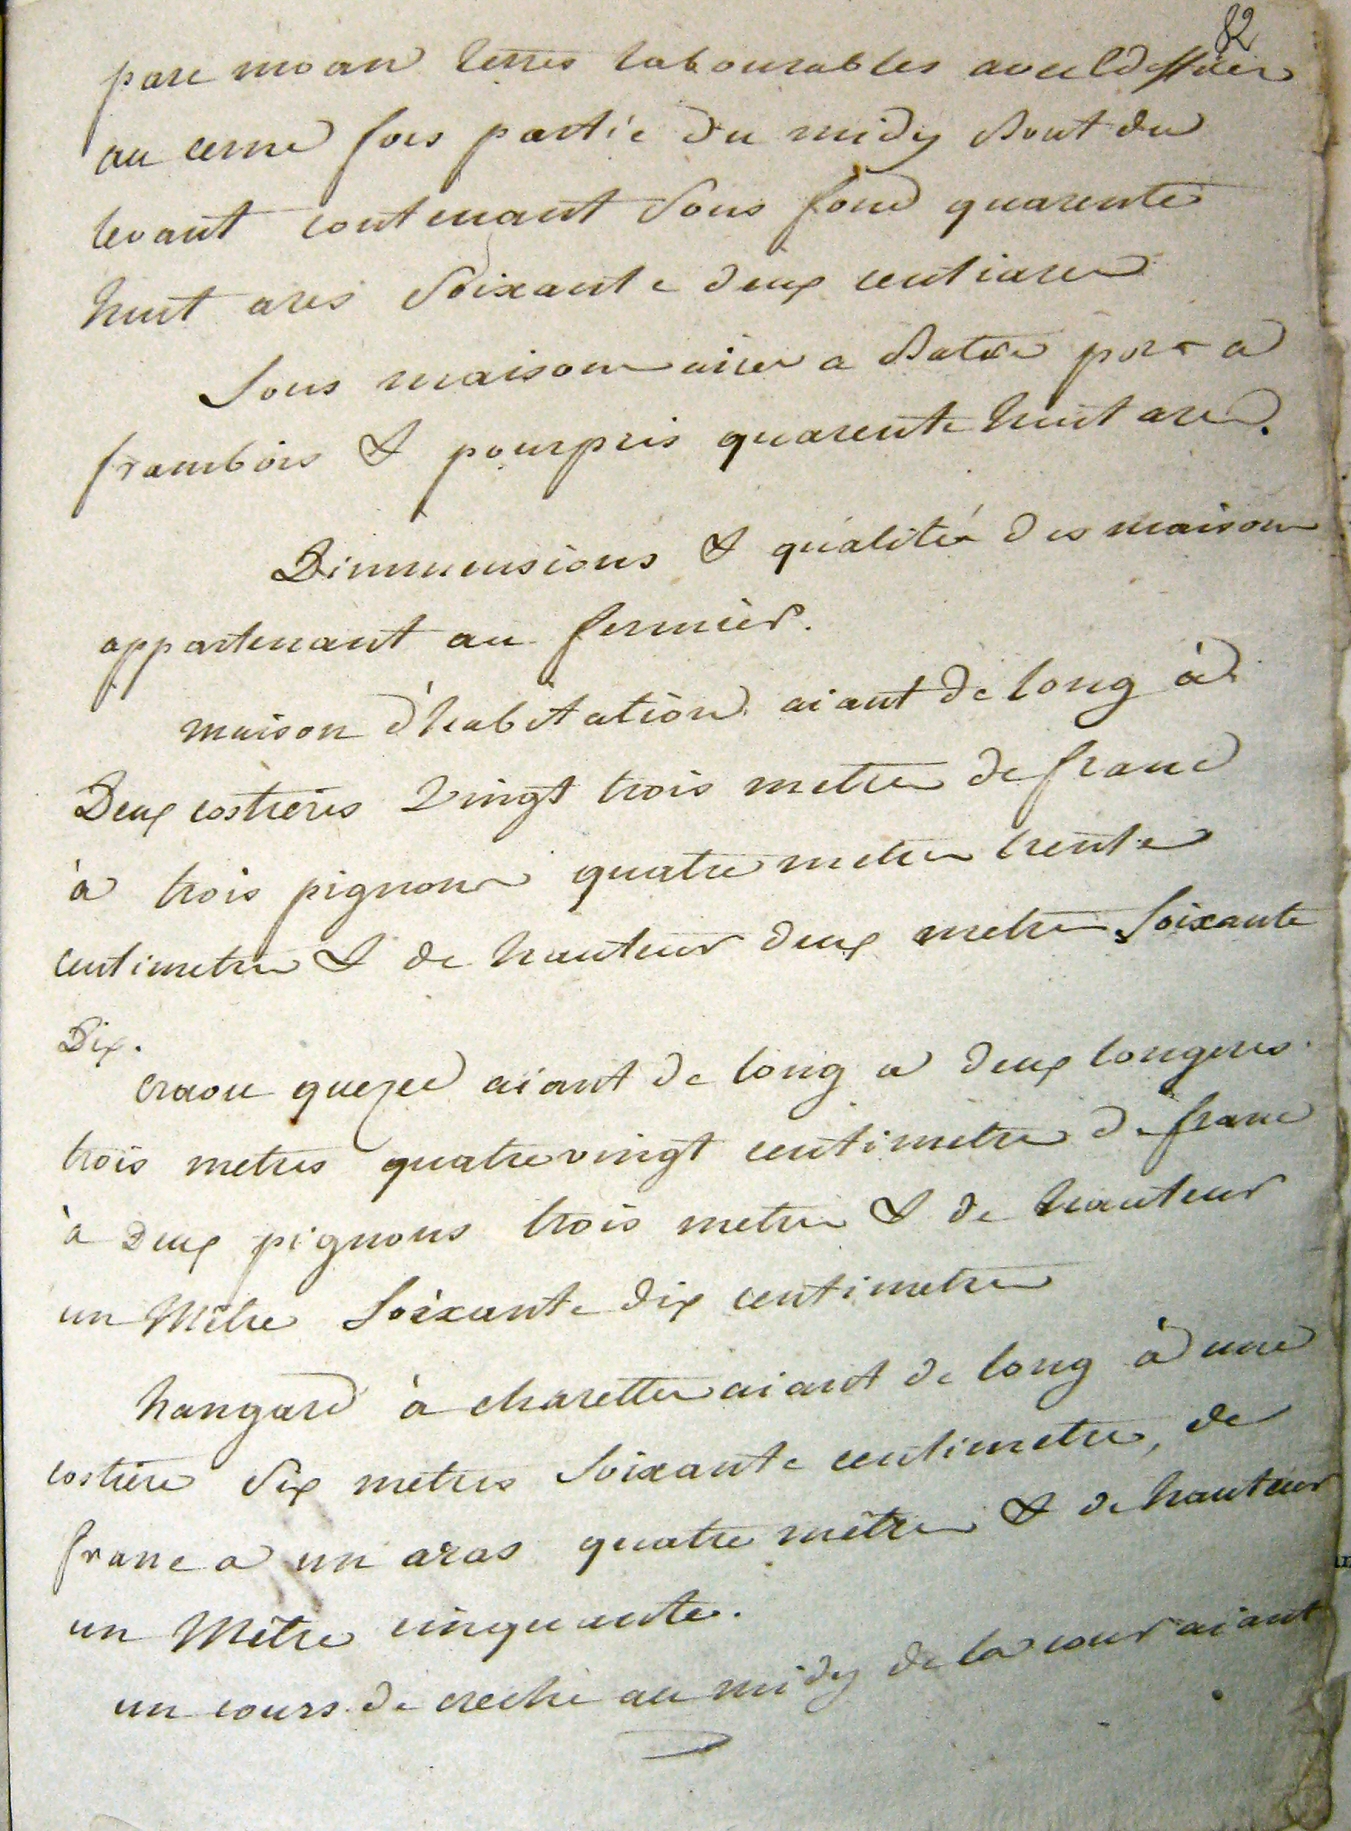 82
parc moan terres labourables avec edffices
au cerne fors partie du midy Bout du
levant contenant sous fond quarente
huit ares soixante deux centiares
Sous maison aire a Batre porz a
frambois & pourpris quarente huit ares.
Dimmensions & qualités des maison
appartenant au fermier.
maison d'habitation aiant de long à
Deux costieres vingt trois metres de franc
à trois pignons quatre metres trente
centimetres & de hauteur deux metres soixante
Dix.
craou quezec aiant de long a deux longeres
trois metres quatrevingt centimetres de franc
à Deux pignons trois metres & de hauteur
un Mêtre soixante dix centimetres
hangard à charettes aiant de long à une
costiere six metres soixante centimetres, de
franc a un aras quatre mêtres & de hauteur
un Mêtre cinquante.
un cours de creche au midy de la cour aiant